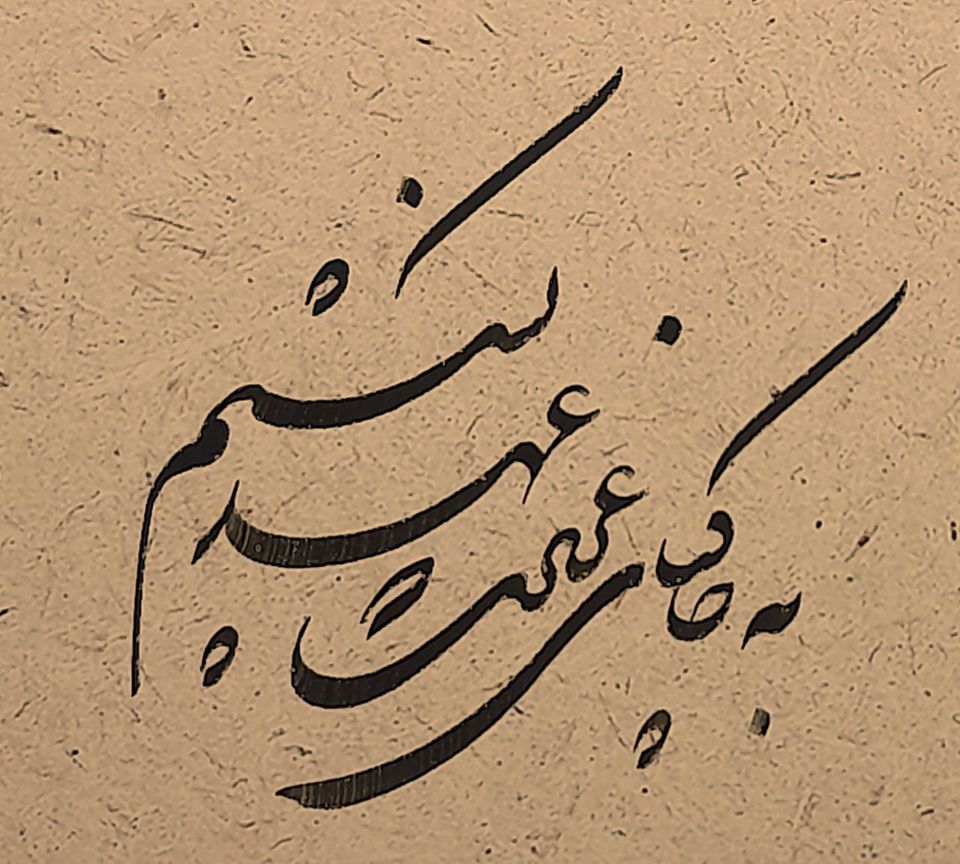 به خاکپای عزیزت
عهد نشکستم